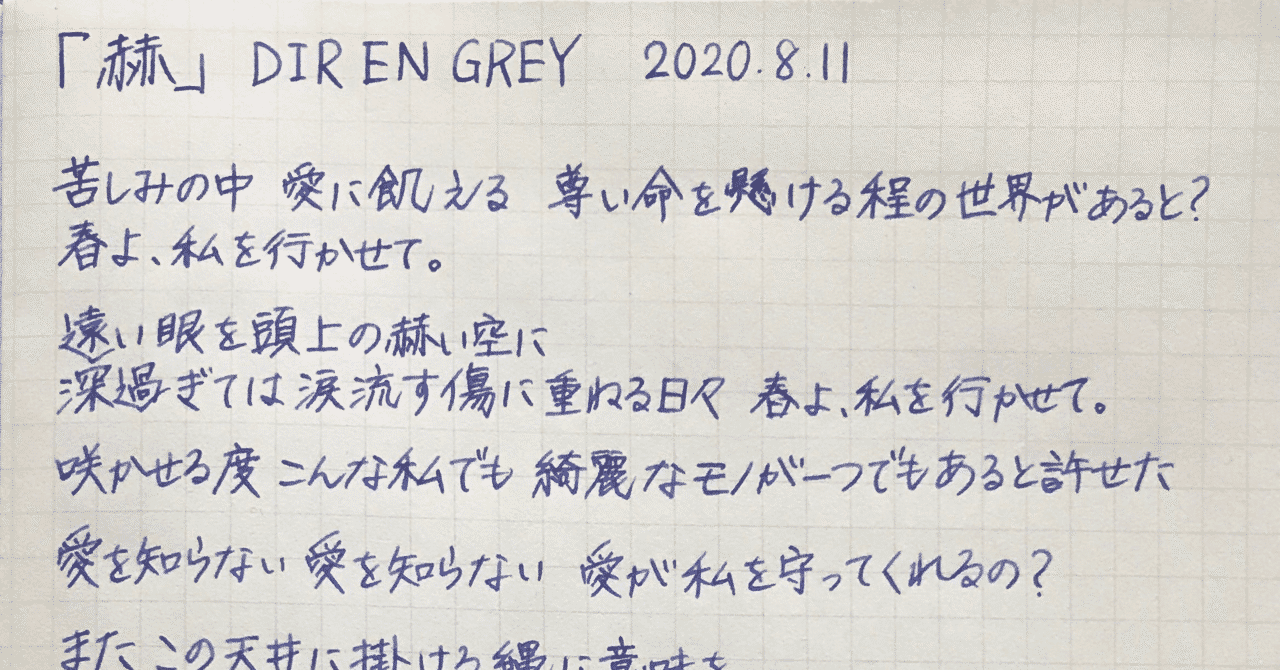 「赫」 DIR EN GREY 2020.8.11
苦しみの中 愛に飢える 尊い命を懸ける程の世界があると?
春よ、私を行かせて。
遠い眼を頭上の赫い空に
深過ぎては涙流す傷に重ねる日々 春よ、私を行かせて。
咲かせる度 こんな私でも 綺麗なモノが一つでもあると許せた
愛を知らない 愛を知らない 愛が私を守ってくれるの?
また この天井に掛ける縄に意味を